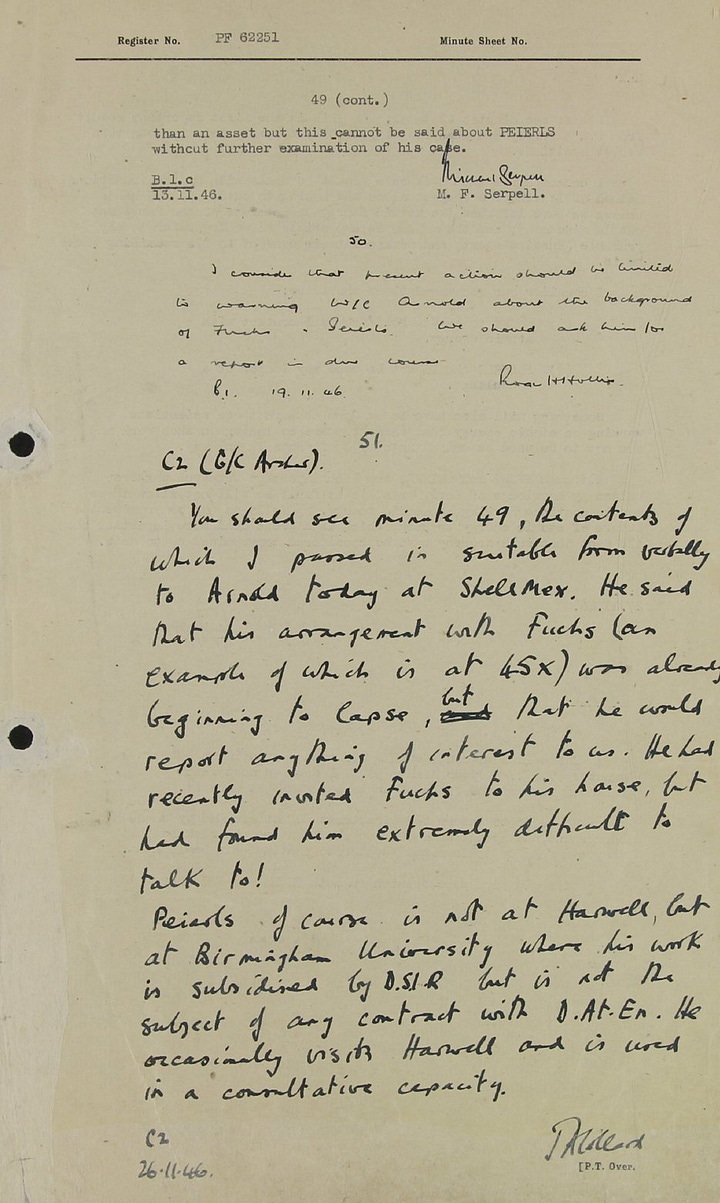 Register No. PF 62251 Minute Sheet No.
49 (cont.)
than an asset but this cannot be said about PEIERLS
without further examination of his case.
B.1.c
13.11.46. M. F. Serpell.
50.
I consider that present action should be limited
to warning W/C Arnold about the background
of Fuchs + Peierls. We should ask him for
a report in due course
B1. 19.11.46 Roger H Hollis.
51.
C2 (G/C Archer).
You should see minute 49, the contents of
which I passed in suitable form verbally
to Arnold today at ShellMex. He said
that his arrangement with Fuchs (an
example of which is at 45x) was already
beginning to lapse, but that he would
report anything of interest to us. He had
recently invited Fuchs to his house, but
had found him extremely difficult to
talk to!
Peierls of course is not at Harwell, but
at Birmingham University where his work
is subsidised by D.S.I.R but is not the
subject of any contract with D.At.En. He
occasionally visits Harwell and is used
in a consultative capacity.
C2
26.11.46.
[P.T. Over.